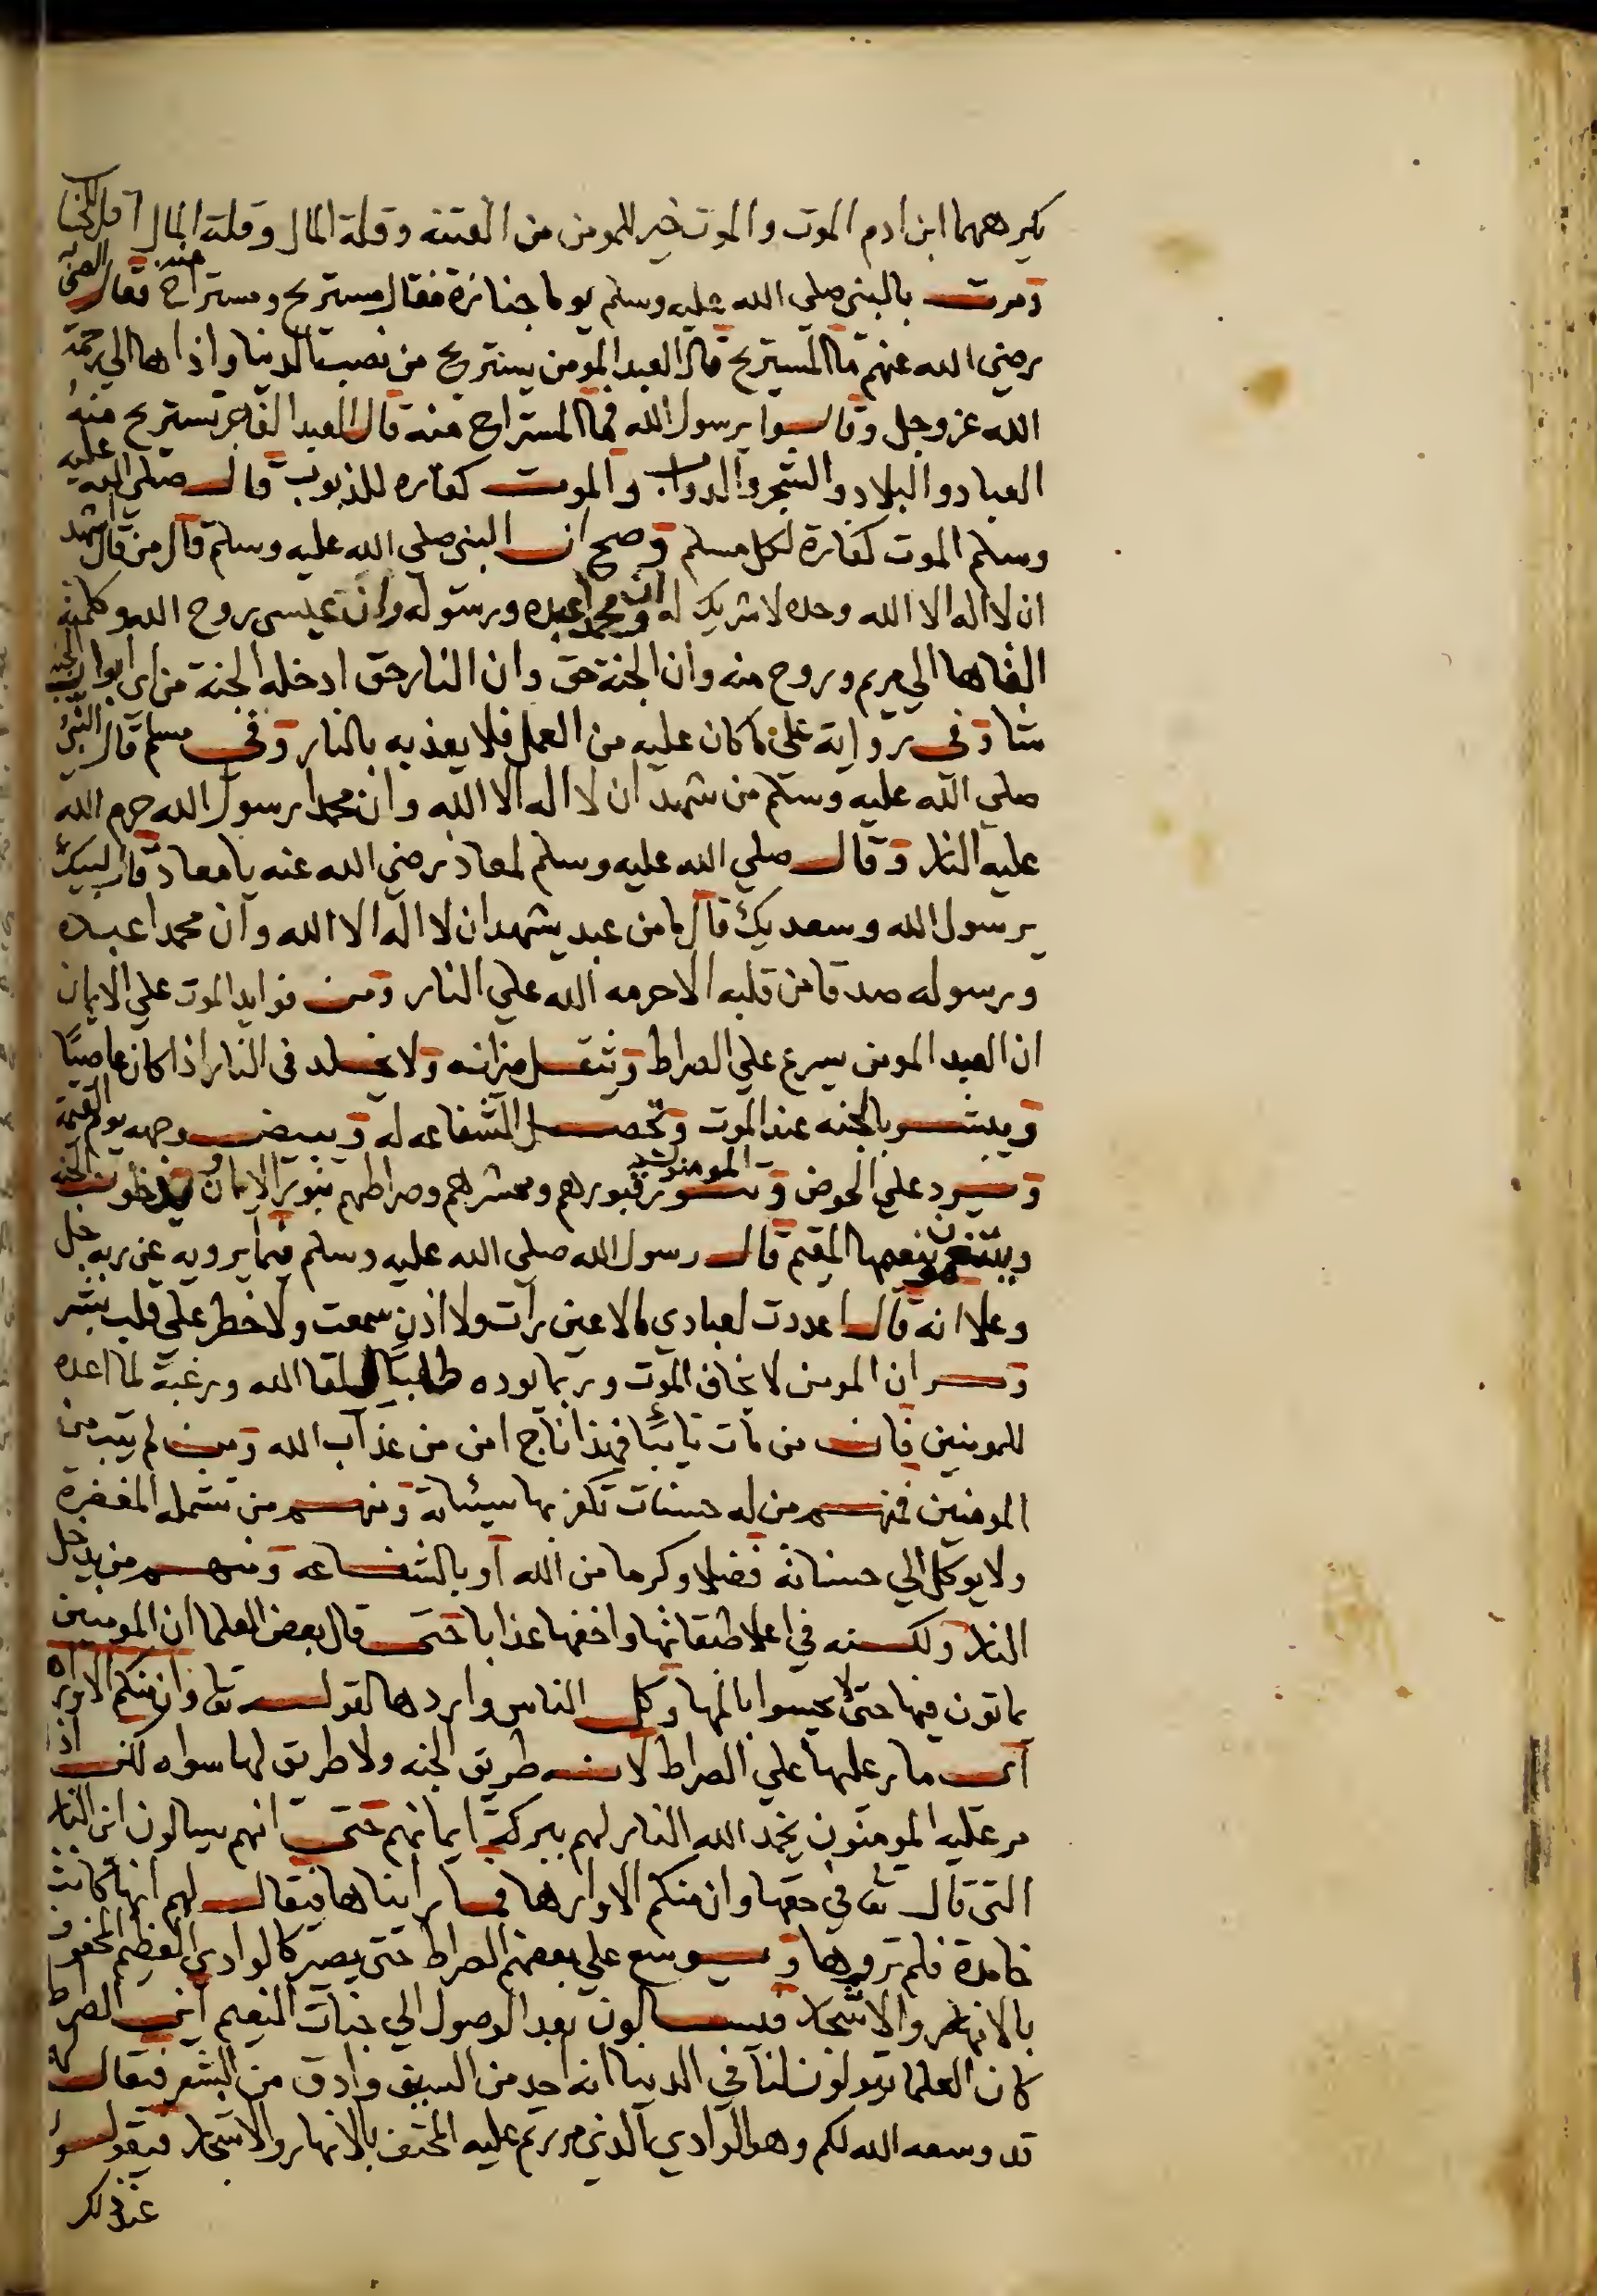 يكرههما ابن ادم الموت والموت خير للمومن من الفتنه وقلة المال وقلة المال اقل للحساب
ومرت بالنبي صلي الله عليه وسلم يوما جنازة فقال مستريح ومستراح منه فقال الصحابه
رضي الله عنهم ما المستريح قال العبد المومن يستريح من نصب الدنيا واذاها الي رحمة
الله عز وجل وقالوا يرسول الله فما المستراح منه قال العبد الفاجر تستريح منه
العباد والبلاد والشجر والدواب والموت كفاره للذنوب قال صلي الله عليه
وسلم الموت كفارة لكل مسلم وصح ان النبي صلي الله عليه وسلم قال من قال اشهد
ان لا اله الا الله وحده لا شريك له وان محمدا عبده ورسوله وان عيسى روح الله وكلمته
القاها الي مريم وروح منه وان الجنة حق وان النار حق ادخله الجنة من اي ابواب الجنه
شا وفى رواية على ما كان عليه من العمل فلا يعذبه بالنار وفى مسلم قال النبي
صلي الله عليه وسلم من شهد ان لا اله الا الله وان محمدا رسول الله حرم الله
عليه النار وقال صلي الله عليه وسلم لمعاذ رضي الله عنه يا معاذ قال لبيك
يرسول الله وسعديك قال ما من عبد يشهد ان لا اله الا الله وان محمدا عبده
ورسوله صدقا من قلبه الا حرمه الله علي النار ومن فوايد الموت علي الايمان
ان العبد المومن يسرع علي الصراط وثثقل ميزانه ولا يخلد فى النار اذا كان عاصيًا
ويبشر بالجنه عند الموت وتحصل الشفاعه له ويبيض وجهه يوم القيمة
ويرد علي الحوض وتنور المومنين قبورهم ومحشرهم وصراطهم بنور الايمان ويدخلون الجنه
ويتنعمون بنعيمها المقيم قال رسول الله صلي الله عليه وسلم فيما يرويه عن ربه جل
وعلا انه قال اعددت لعبادي ما لا عين رات ولا اذن سمعت ولا خطر علي قلب بشر
وسر ان المومن لا يخاف الموت وربما يوده طلبًا للقا الله ورغبة لما اعده
للمومنين فان من مات تايبًا فهذا ناج امن من عذاب الله ومن لم يتب من
المومنين فمنهم من له حسنات تكفر بها سيئاته ومنهم من تشمله المغفرة
ولا يوكل الي حسناته فضلا وكرما من الله او بالشفاعه ومنهم من يدخل
النار ولكنه في اعلا طبقاتها واخفها عذابا حتى قال بعض العلما ان المومنين
يماتون فيها حتى لا يحسوا بالمها وكل الناس واردها لقوله تعا وان منكم الا واردها
اى مار عليها علي الصراط لانه طريق الجنه ولا طريق لها سواه لكن اذا
مر عليه المومنون يخمد الله النار لهم ببركة ايمانهم حتى انهم يسالون اين النار
التى قال تعا في حقها وان منكم الا واردها فما رايناها فيقال لهم انها كانت
خامدة فلم تروها ويوسع علي بعضهم الصراط حتى يصير كالوادي العظيم المحفوف
بالانهار والاشجار فيسالون بعد الوصول الي جنات النعيم اين الصراط
كان العلما يقولون لنا في الدنيا انه احد من السيف وادق من الشعر فيقال لهم
قد وسعه الله لكم وهو الوادي الذي مررتم عليه المحتف بالانهار والاشجار فيقولوا
عند ذلك